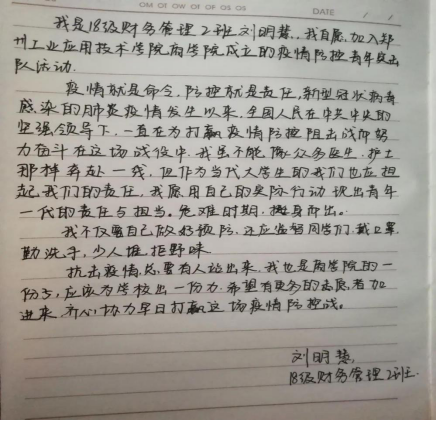 OM OT OW OT OF OS OS DATE / /
我是18级财务管理2班刘明慧，我自愿加入郑
州工业应用技术学院商学院成立的疫情防控青年突击
队活动.
疫情就是命令，防控就是责任，新型冠状病毒
感染的肺炎疫情发生以来，全国人民在中共中央的
坚强领导下，一直在为打赢疫情防控阻击战而努
力奋斗在这场战役中，我虽不能像众多医生，护士
那样奔赴一线，但作为当代大学生的我们也应担
起我们的责任，我愿用自己的实际行动 现出青年
一代的责任与担当。危难时期，挺身而出。
我不仅要自己做好预防，还应 同学们，戴口罩
勤洗手，少人堆，拒野味
抗击疫情，总要有人站出来，我也是商学院的一
份子，应该为学校出一份力，希望有更多的志愿者加
进来，齐心协力早日打赢这场疫情防控战。
刘明慧，
18级财务管理2班.